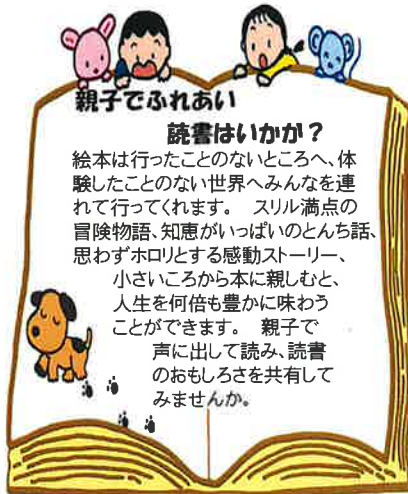 親子でふれあい
読書はいかが？
絵本は行ったことのないところへ、体
験したことのない世界へみんなを連
れて行ってくれます。　スリル満点の
冒険物語、知恵がいっぱいのとんち話、
思わずホロリとする感動ストーリー、
小さいころから本に親しむと、
人生を何倍も豊かに味わう
ことができます。　親子で
声に出して読み、読書
のおもしろさを共有して
みませんか。